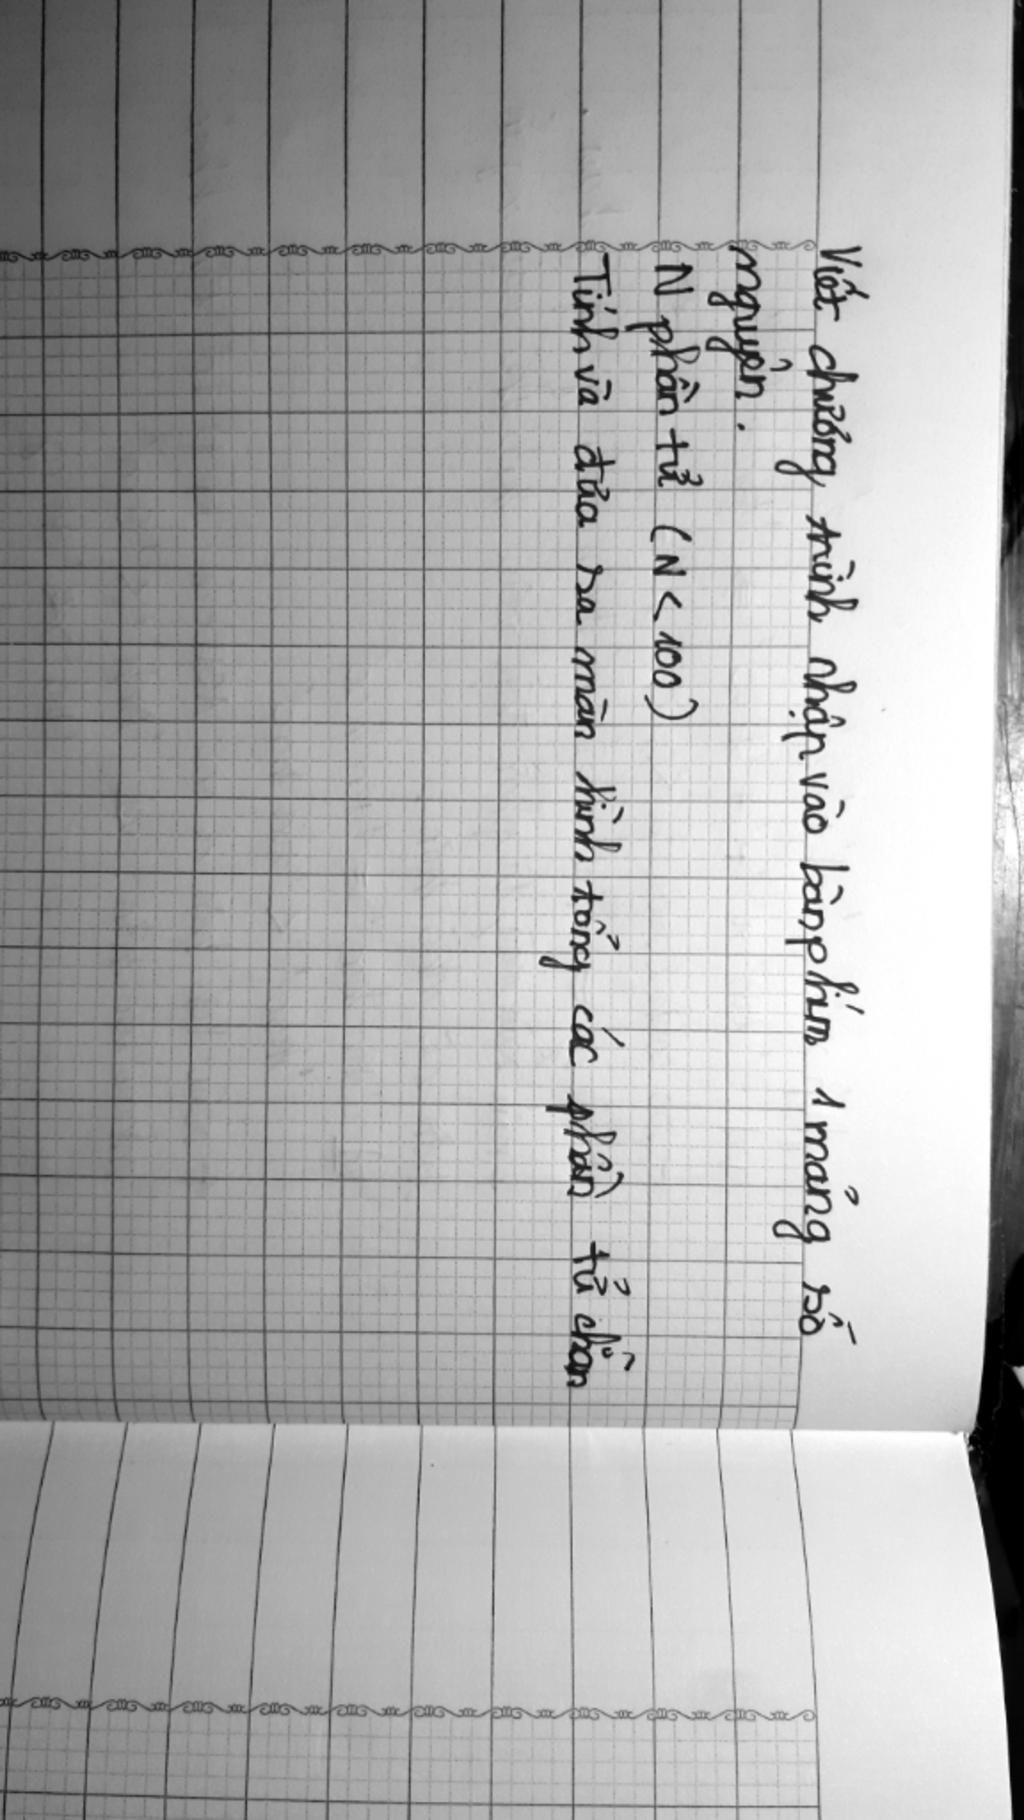 Viết chương trình nhập vào bàn phím 1 mảng số
nguyên.
N phần tử (N < 100)
Tính và đưa ra màn hình tổng các phần tử chẵn